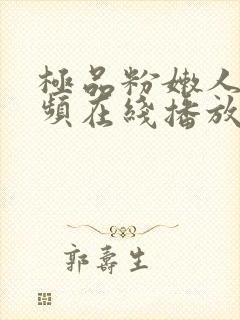 極品粉嫩人
頻在綫播放
郭壽生